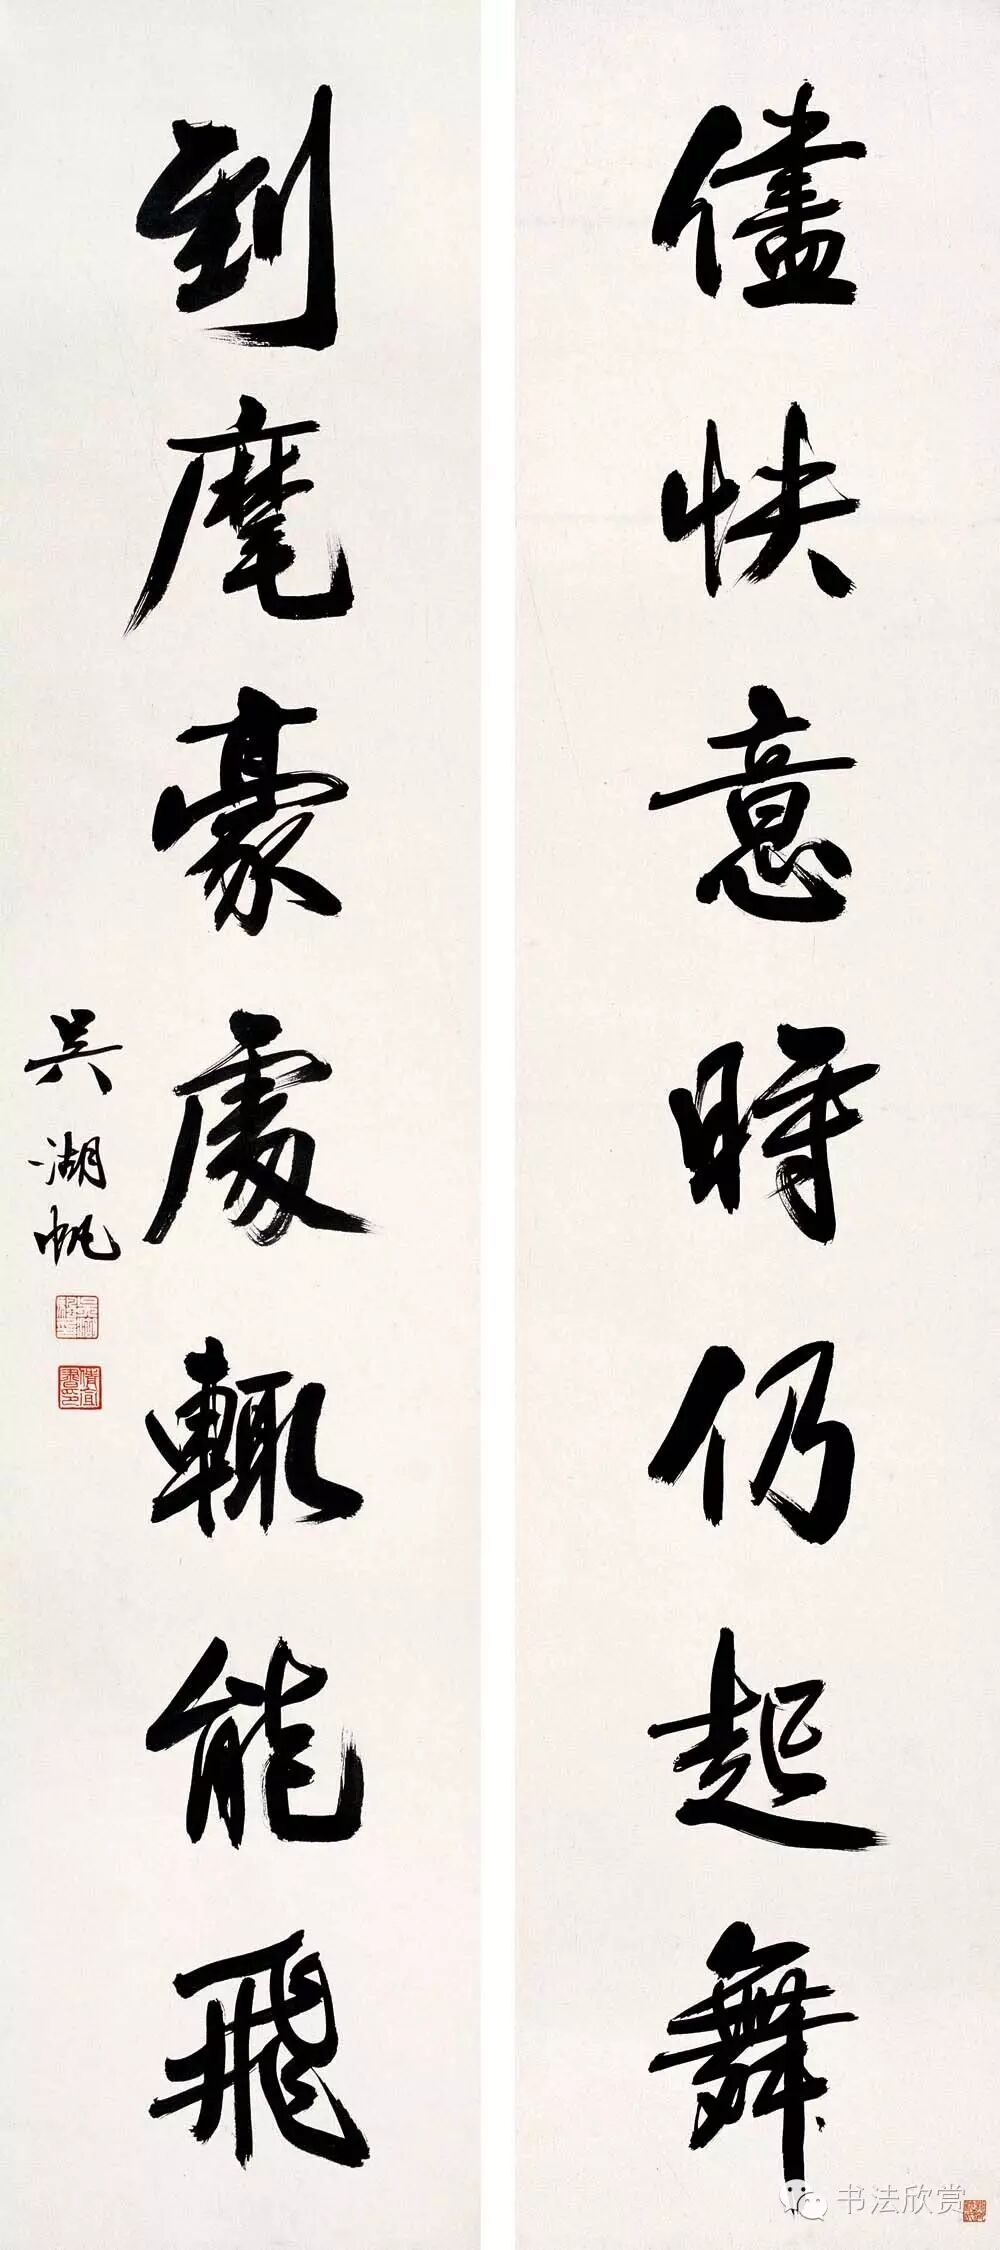 儘快意時仍起舞
到麾豪處輒能飛
吳湖帆
书法欣赏